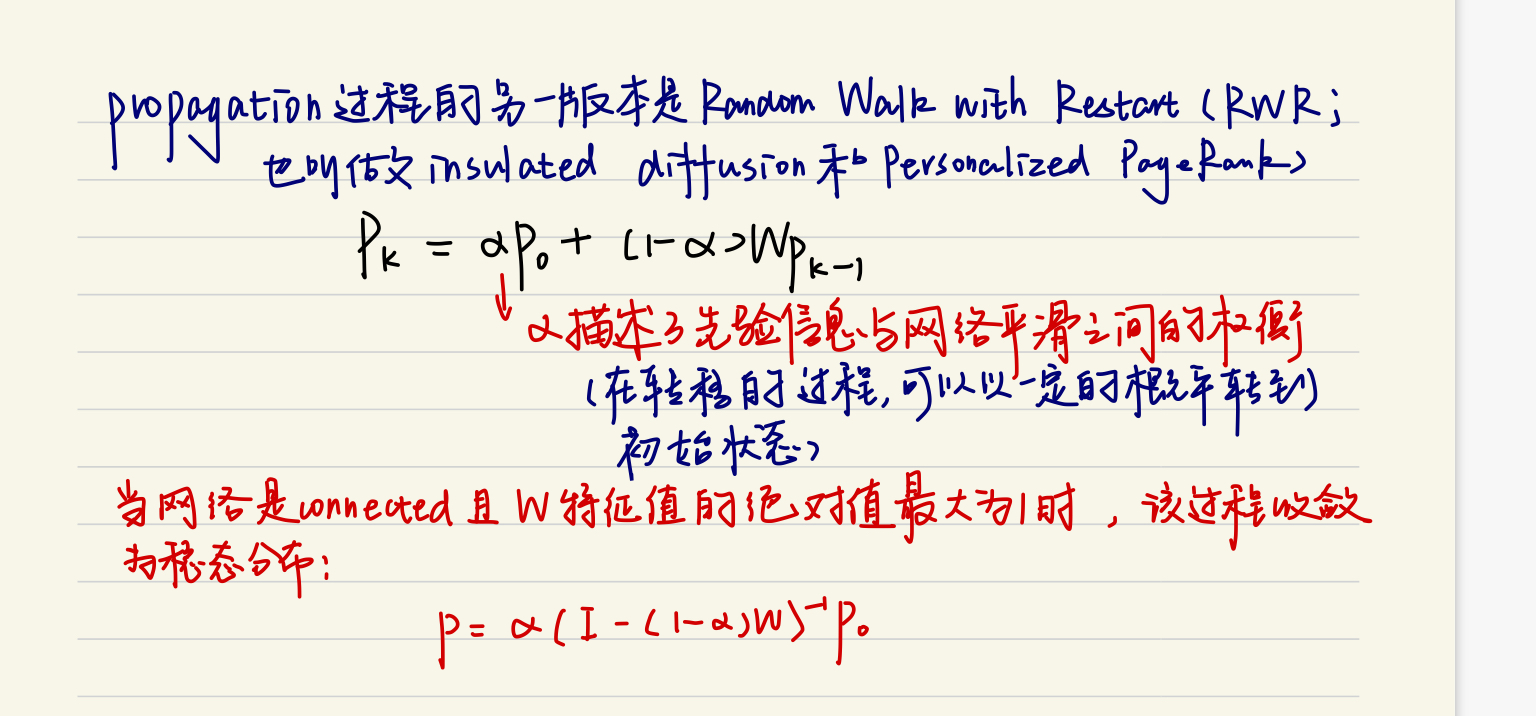 propagation过程的另一版本是 Random Walk with Restart (RWR;
也叫做 insulated diffusion 和 Personalized PageRank)
P_k = αP_0 + (1-α)Wp_{k-1}
α描述了先验信息与网络平滑之间的权衡
(在转移的过程,可以以一定的概率转到
初始状态)
当网络是connected且W特征值的绝对值最大为1时,该过程收敛
为稳态分布:
p = α(I-(1-α)W)^{-1}p_0